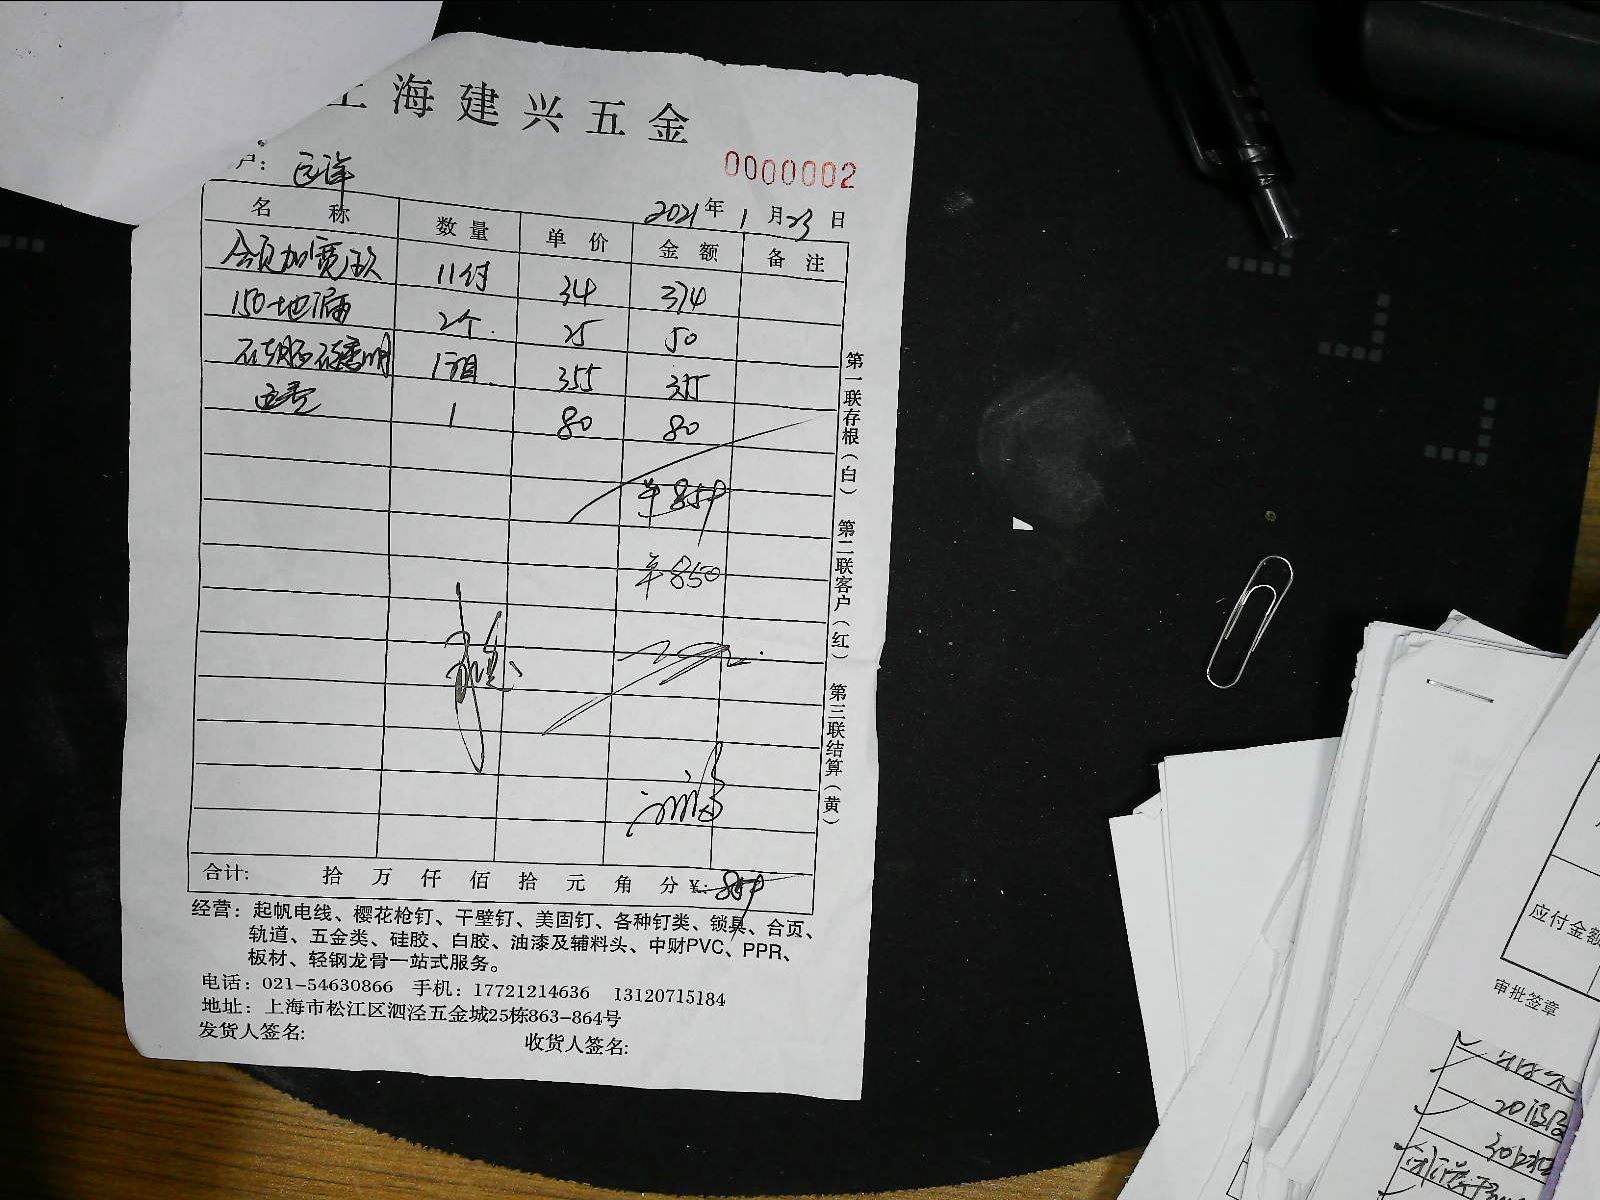 上海建兴五金
0000002
户: 巨洋
2021年 1月23日
名 称 数量 单价 金额 备注
合页加宽 11付 34 374
150地漏 2个 25 50
1箱 355 355
运费 1 80 80
¥859
¥850
第一联存根(白) 第二联客户(红) 第三联结算(黄)
合计: 拾 万 仟 佰 拾 元 角 分 ¥: 859
经营: 起帆电线、樱花枪钉、干壁钉、美固钉、各种钉类、锁具、合页、
轨道、五金类、硅胶、白胶、油漆及辅料头、中财PVC、PPR、
板材、轻钢龙骨一站式服务。
电话: 021-54630866 手机: 17721214636 13120715184
地址: 上海市松江区泗泾五金城25栋863-864号
发货人签名: 收货人签名:
应付金额
审批签章